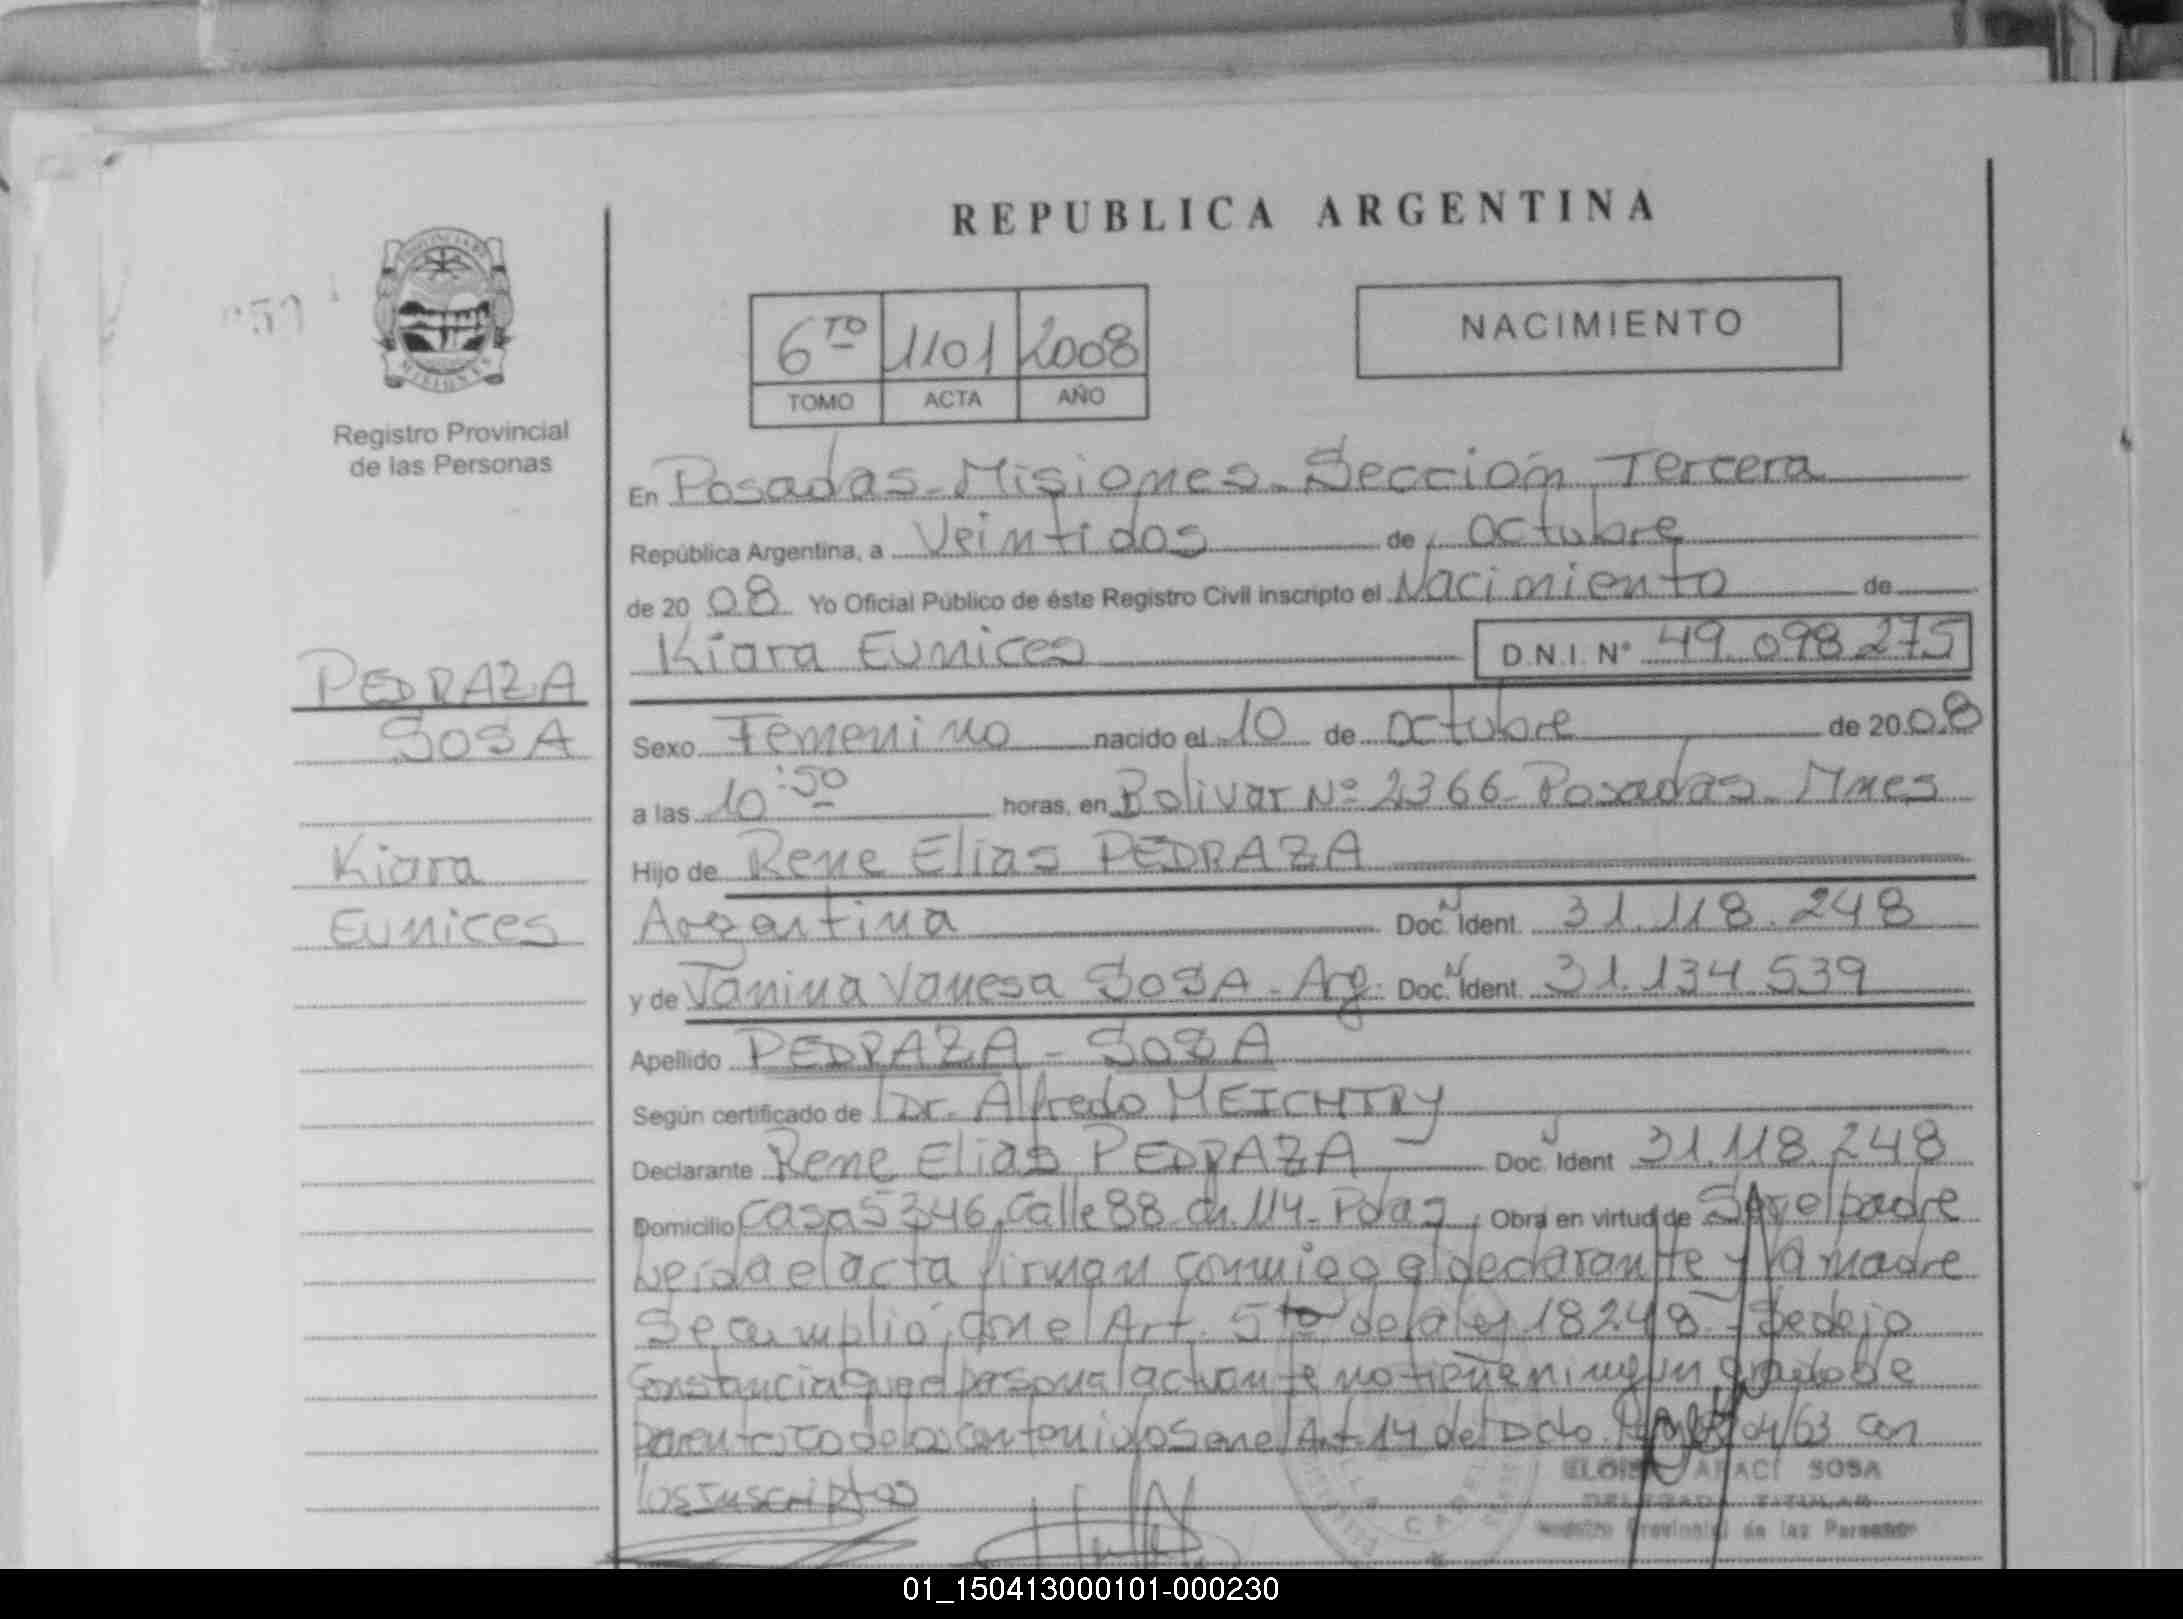 REPUBLICA ARGENTINA
6TO 1101 2008
TOMO ACTA AÑO
NACIMIENTO
MISIONES
Registro Provincial
de las Personas
En Posadas - Misiones - Sección Tercera
República Argentina, a Veintidos de octubre
de 2008 Yo Oficial Público de éste Registro Civil inscripto el Nacimiento de
Kiara Eunices D.N.I. Nº 49.098.275
PEDRAZA
SOSA
Kiara
Eunices
Sexo Femenino nacido el 10 de octubre de 2008
a las 10:50 horas, en Bolivar Nº 2366 - Posadas - Mnes
Hijo de Rene Elias PEDRAZA
Argentina Doc. Ident. 31.118.248
y de Yanina Vanesa SOSA - Arg. Doc. Ident. 31.134.539
Apellido PEDRAZA - SOSA
Según certificado de Dr. Alfredo MEICHTRY
Declarante Rene Elias PEDRAZA Doc. Ident 31.118.248
Domicilio Casa 5346, Calle 88 ch. 114 - Pdas, Obra en virtud de Ser el padre
Leida el acta firman conmigo el declarante y la madre
Se cumplió con el Art. 5to de la ley 18248 - Se deja
Constancia que el personal actuante no tiene ningun grado de
parentesco de los contenidos en el Art. 14 del Dcto 04/63 con
los inscriptos
ARACI SOSA
DELEGADA TITULAR
Registro Provincial de las Personas
01_150413000101-000230